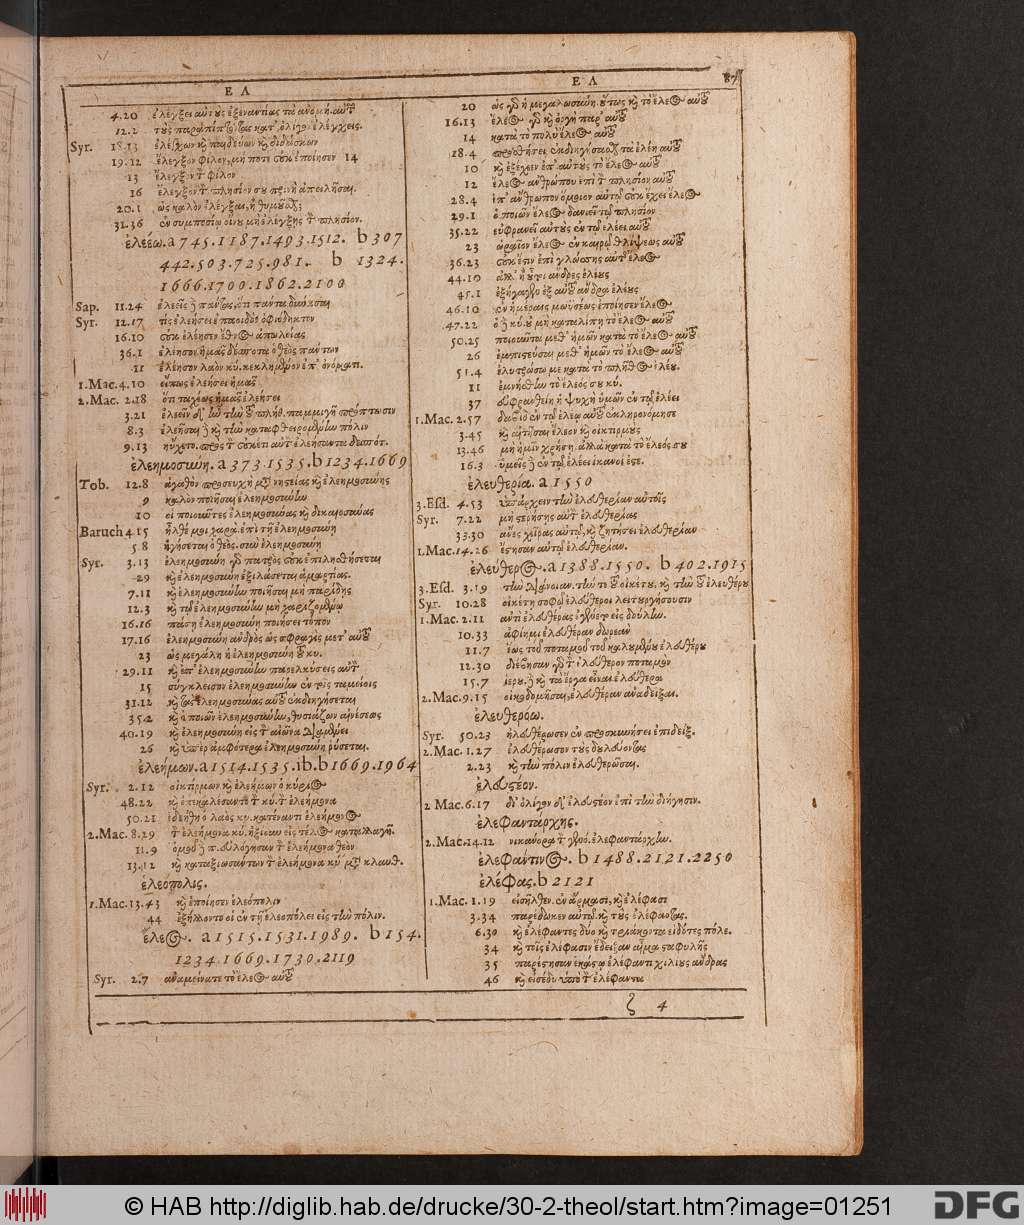 Ε Λ
4.20 ἐλέγξει αὐτοὺς ἐξεναντίας τὰ
12.2 τοὺς κατ' ὀλίγον ἐλέγχεις.
Syr. 18.13 ἐλέγχων καὶ παιδεύων καὶ διδάσκων
19.12 ἔλεγξον φίλον, μή ποτε οὐκ ἐποίησεν 14
13 ἔλεγξον τ φίλον
16 ἔλεγξον τ πλησίον σου πρινὴ ἀπειλῆσαι.
20.1 ὡς καλὸν ἐλέγξαι, ἢ
31.36 ἐν συμποσίῳ οἴνου μὴ ἐλέγξῃς τ πλησίον.
ἐλεέω. a 745. 1187. 1493. 1512. b 307
442. 503. 725. 981. b 1324.
1666. 1700. 1862. 2100
Sap. 11.24 ἐλεεῖς πάντας, ὅτι πάντα
Syr. 12.17 τίς ἐλεήσει ἐπαοιδὸν ὀφιόδηκτον
16.10 οὐκ ἐλέησεν ἔθνος ἀπωλείας
36.1 ἐλέησον ἡμᾶς δέσποτα ὁ θεὸς πάντων
11 ἐλέησον λαὸν κύ. κεκλημένον ἐπ' ὀνόματι.
1.Mac. 4.10 εἴπως ἐλεήσει ἡμᾶς
2.Mac. 2.18 ὅτι ταχέως ἡμᾶς ἐλεήσει
3.21 ἐλεεῖν παμμιγῆ πρόπτωσιν
8.3 ἐλεῆσαι καὶ τὴν καταφθειρομένην πόλιν
9.13 ηὔχετο ἐλεήσοντα
ἐλεημοσύνη. a 373. 1535. b 1234. 1669
Tob. 12.8 ἀγαθὸν προσευχὴ μετὰ νηστείας καὶ ἐλεημοσύνης
9 καλὸν ποιῆσαι ἐλεημοσύνην
10 οἱ ποιοῦντες ἐλεημοσύνας καὶ δικαιοσύνας
Baruch 4.15 ἦλθέ μοι χαρὰ ἐπὶ τῇ ἐλεημοσύνῃ
5.8 ἡγήσεται ὁ θεὸς σὺν ἐλεημοσύνῃ
Syr. 3.13 ἐλεημοσύνη πατρὸς οὐκ ἐπιλησθήσεται
29 καὶ ἐλεημοσύνη ἐξιλάσεται ἁμαρτίας.
7.11 καὶ ἐλεημοσύνην ποιῆσαι μὴ παρίδῃς
12.3 καὶ τῷ ἐλεημοσύνην μὴ χαριζομένῳ
16.16 πάσῃ ἐλεημοσύνῃ ποιήσει τόπον
17.16 ἐλεημοσύνη ἀνδρὸς ὡς σφραγὶς μετ' αὐτοῦ
23 ὡς μεγάλη ἡ ἐλεημοσύνη τοῦ κυ.
29.11 καὶ ἐπ' ἐλεημοσύνην παρελκύσεις αὐτ
15 σύγκλεισον ἐλεημοσύνην ἐν τοῖς ταμείοις
31.12 καὶ τὰς ἐλεημοσύνας αὐτοῦ ἐκδιηγήσεται
35.2 καὶ ὁ ποιῶν ἐλεημοσύνην, θυσιάζων αἰνέσεως
40.19 καὶ ἐλεημοσύνη εἰς τ αἰῶνα διαμένει
26 καὶ ὑπὲρ ἀμφότερα ἐλεημοσύνη ῥύσεται.
ἐλεήμων. a 1514. 1535. ib. b 1669. 1964
Syr. 2.12 οἰκτίρμων καὶ ἐλεήμων ὁ κύριος
48.22 καὶ ἐπεκαλέσαντο τ κύ. τ ἐλεήμονα
50.21 ἐδεήθη ὁ λαὸς κυ. κατέναντι ἐλεήμονος
2.Mac. 8.29 τ ἐλεήμονα κύ. ἠξίουν εἰς τέλος
11.9 ὁμοῦ εὐλόγησαν τ ἐλεήμονα θεὸν
13.12 καὶ καταξιωσάντων τ ἐλεήμονα κύ μετὰ κλαυθ.
ἐλεόπολις.
1.Mac. 13.43 καὶ ἐποίησεν ἐλεόπολιν
44 ἐξήλλοντο οἱ ἐν τῇ ἐλεοπόλει εἰς τὴν πόλιν.
ἔλεος. a 1515. 1531. 1989. b 154.
1234. 1669. 1730. 2119
Syr. 2.7 ἀναμείνατε τὸ ἔλεος αὐτοῦ
Ε Λ 87
20 ὡς ἡ μεγαλωσύνη. οὕτως καὶ τὸ ἔλεος αὐτοῦ
16.13 ἔλεος καὶ ὀργὴ παρ' αὐτοῦ
14 κατὰ τὸ πολὺ ἔλεος αὐτοῦ
18.4 προσθήσει ἐκδιηγήσασθαι τὰ ἐλέη αὐτοῦ
10 καὶ ἐξέχεεν ἐπ' αὐτοὺς τὸ ἔλεος αὐτοῦ
12 ἔλεος ἀνθρώπου ἐπὶ τ πλησίον αὐτοῦ
28.4 ἐπ' ἄνθρωπον ὅμοιον αὐτῷ οὐκ ἔχει ἔλεος
29.1 ὁ ποιῶν ἔλεος δανιεῖ τῷ πλησίον
35.22 εὐφρανεῖ αὐτοὺς ἐν τῷ ἐλέει αὐτοῦ
23 ὡραῖον ἔλεος ἐν καιρῷ θλίψεως αὐτοῦ
36.23 ἐπὶ γλώσσης αὐτ ἔλεος
44.10 ἀλλ' ἢ οὗτοι ἄνδρες ἐλέους
45.1 ἐξήγαγεν ἐξ αὐτοῦ ἄνδρα ἐλέους
46.10 ἐν ἡμέραις μωϋσέως ἐποίησεν ἔλεος
47.22 ὁ κύ. οὐ μὴ καταλίπῃ τὸ ἔλεος αὐτοῦ
50.25 ποιοῦντα μεθ' ἡμῶν κατὰ τὸ ἔλεος αὐτοῦ
26 ἐμπιστεῦσαι μεθ' ἡμῶν τὸ ἔλεος αὐτοῦ
51.4 ἐλυτρώσω με κατὰ τὸ πλῆθος ἐλέου.
11 ἐμνήσθην τὸ ἔλεός σου κύ.
37 εὐφρανθείη ἡ ψυχὴ ὑμῶν ἐν τῷ ἐλέει
1.Mac. 2.57 δαβὶδ ἐν τῷ ἐλέῳ αὐτοῦ ἐκληρονόμησε
3.45 καὶ αἰτῆσαι ἔλεον καὶ οἰκτιρμοὺς
13.46 μὴ ἡμῖν χρήσῃ. ἀλλὰ κατὰ τὸ ἔλεός σου
16.3 ὑμεῖς ἐν τῷ ἐλέει ἱκανοί ἐστε.
ἐλευθερία. a 1550
3.Esd. 4.53 ὑπάρχειν τὴν ἐλευθερίαν αὐτοῖς
Syr. 7.22 μὴ στερήσῃς αὐτ ἐλευθερίας
33.30 ἄνες χεῖρας αὐτῷ, καὶ ζητήσει ἐλευθερίαν
1.Mac. 14.26 ἔστησαν αὐτῷ ἐλευθερίαν.
ἐλεύθερος. a 1388. 1550. b 402. 1915
3.Esd. 3.19 τὴν διάνοιαν. τήν τε τοῦ οἰκέτου, καὶ τὴν τοῦ ἐλευθέρου
Syr. 10.28 οἰκέτῃ σοφῷ ἐλεύθεροι λειτουργήσουσιν
1.Mac. 2.11 ἀντὶ ἐλευθέρας ἐγένετο εἰς δούλην.
10.33 ἀφίημι ἐλευθέραν δωρεὰν
11.7 ἕως τοῦ ποταμοῦ τοῦ καλουμένου ἐλευθέρου
12.30 διέβησαν τ ἐλεύθερον ποταμὸν
15.7 ἱερου. καὶ τὰ ἅγια εἶναι ἐλεύθερα
2.Mac. 9.15 οἰκοδομῆσαι, ἐλευθέραν ἀναδεῖξαι.
ἐλευθερόω.
Syr. 50.23 ἠλευθέρωσεν ἐν προσκυνήσει ἐπιδεῖξ.
2.Mac. 1.27 ἐλευθέρωσον τοὺς δουλεύοντας
2.23 καὶ τὴν πόλιν ἐλευθερῶσαι.
ἐλευστέον.
2 Mac. 6.17 δι' ὀλίγων δ' ἐλευστέον ἐπὶ τὴν διήγησιν.
ἐλεφαντάρχης.
2.Mac. 14.12 νικάνορα τ γενόμ. ἐλεφαντάρχην.
ἐλεφάντινος. b 1488. 2121. 2250
ἐλέφας. b 2121
1.Mac. 1.19 εἰσῆλθεν. ἐν ἅρμασι, καὶ ἐλέφασι
3.34 παρέδωκεν αὐτῷ. καὶ τοὺς ἐλέφαντας.
6.30 καὶ ἐλέφαντες δύο καὶ τριάκοντα εἰδότες πόλε.
34 καὶ τοῖς ἐλέφασιν ἔδειξαν αἷμα σταφυλῆς
35 παρέστησαν ἑκάστῳ ἐλέφαντι χιλίους ἄνδρας
46 καὶ εἰσέδυ ὑπὸ τ ἐλέφαντα
ζ 4
© HAB http://diglib.hab.de/drucke/30-2-theol/start.htm?image=01251
DFG